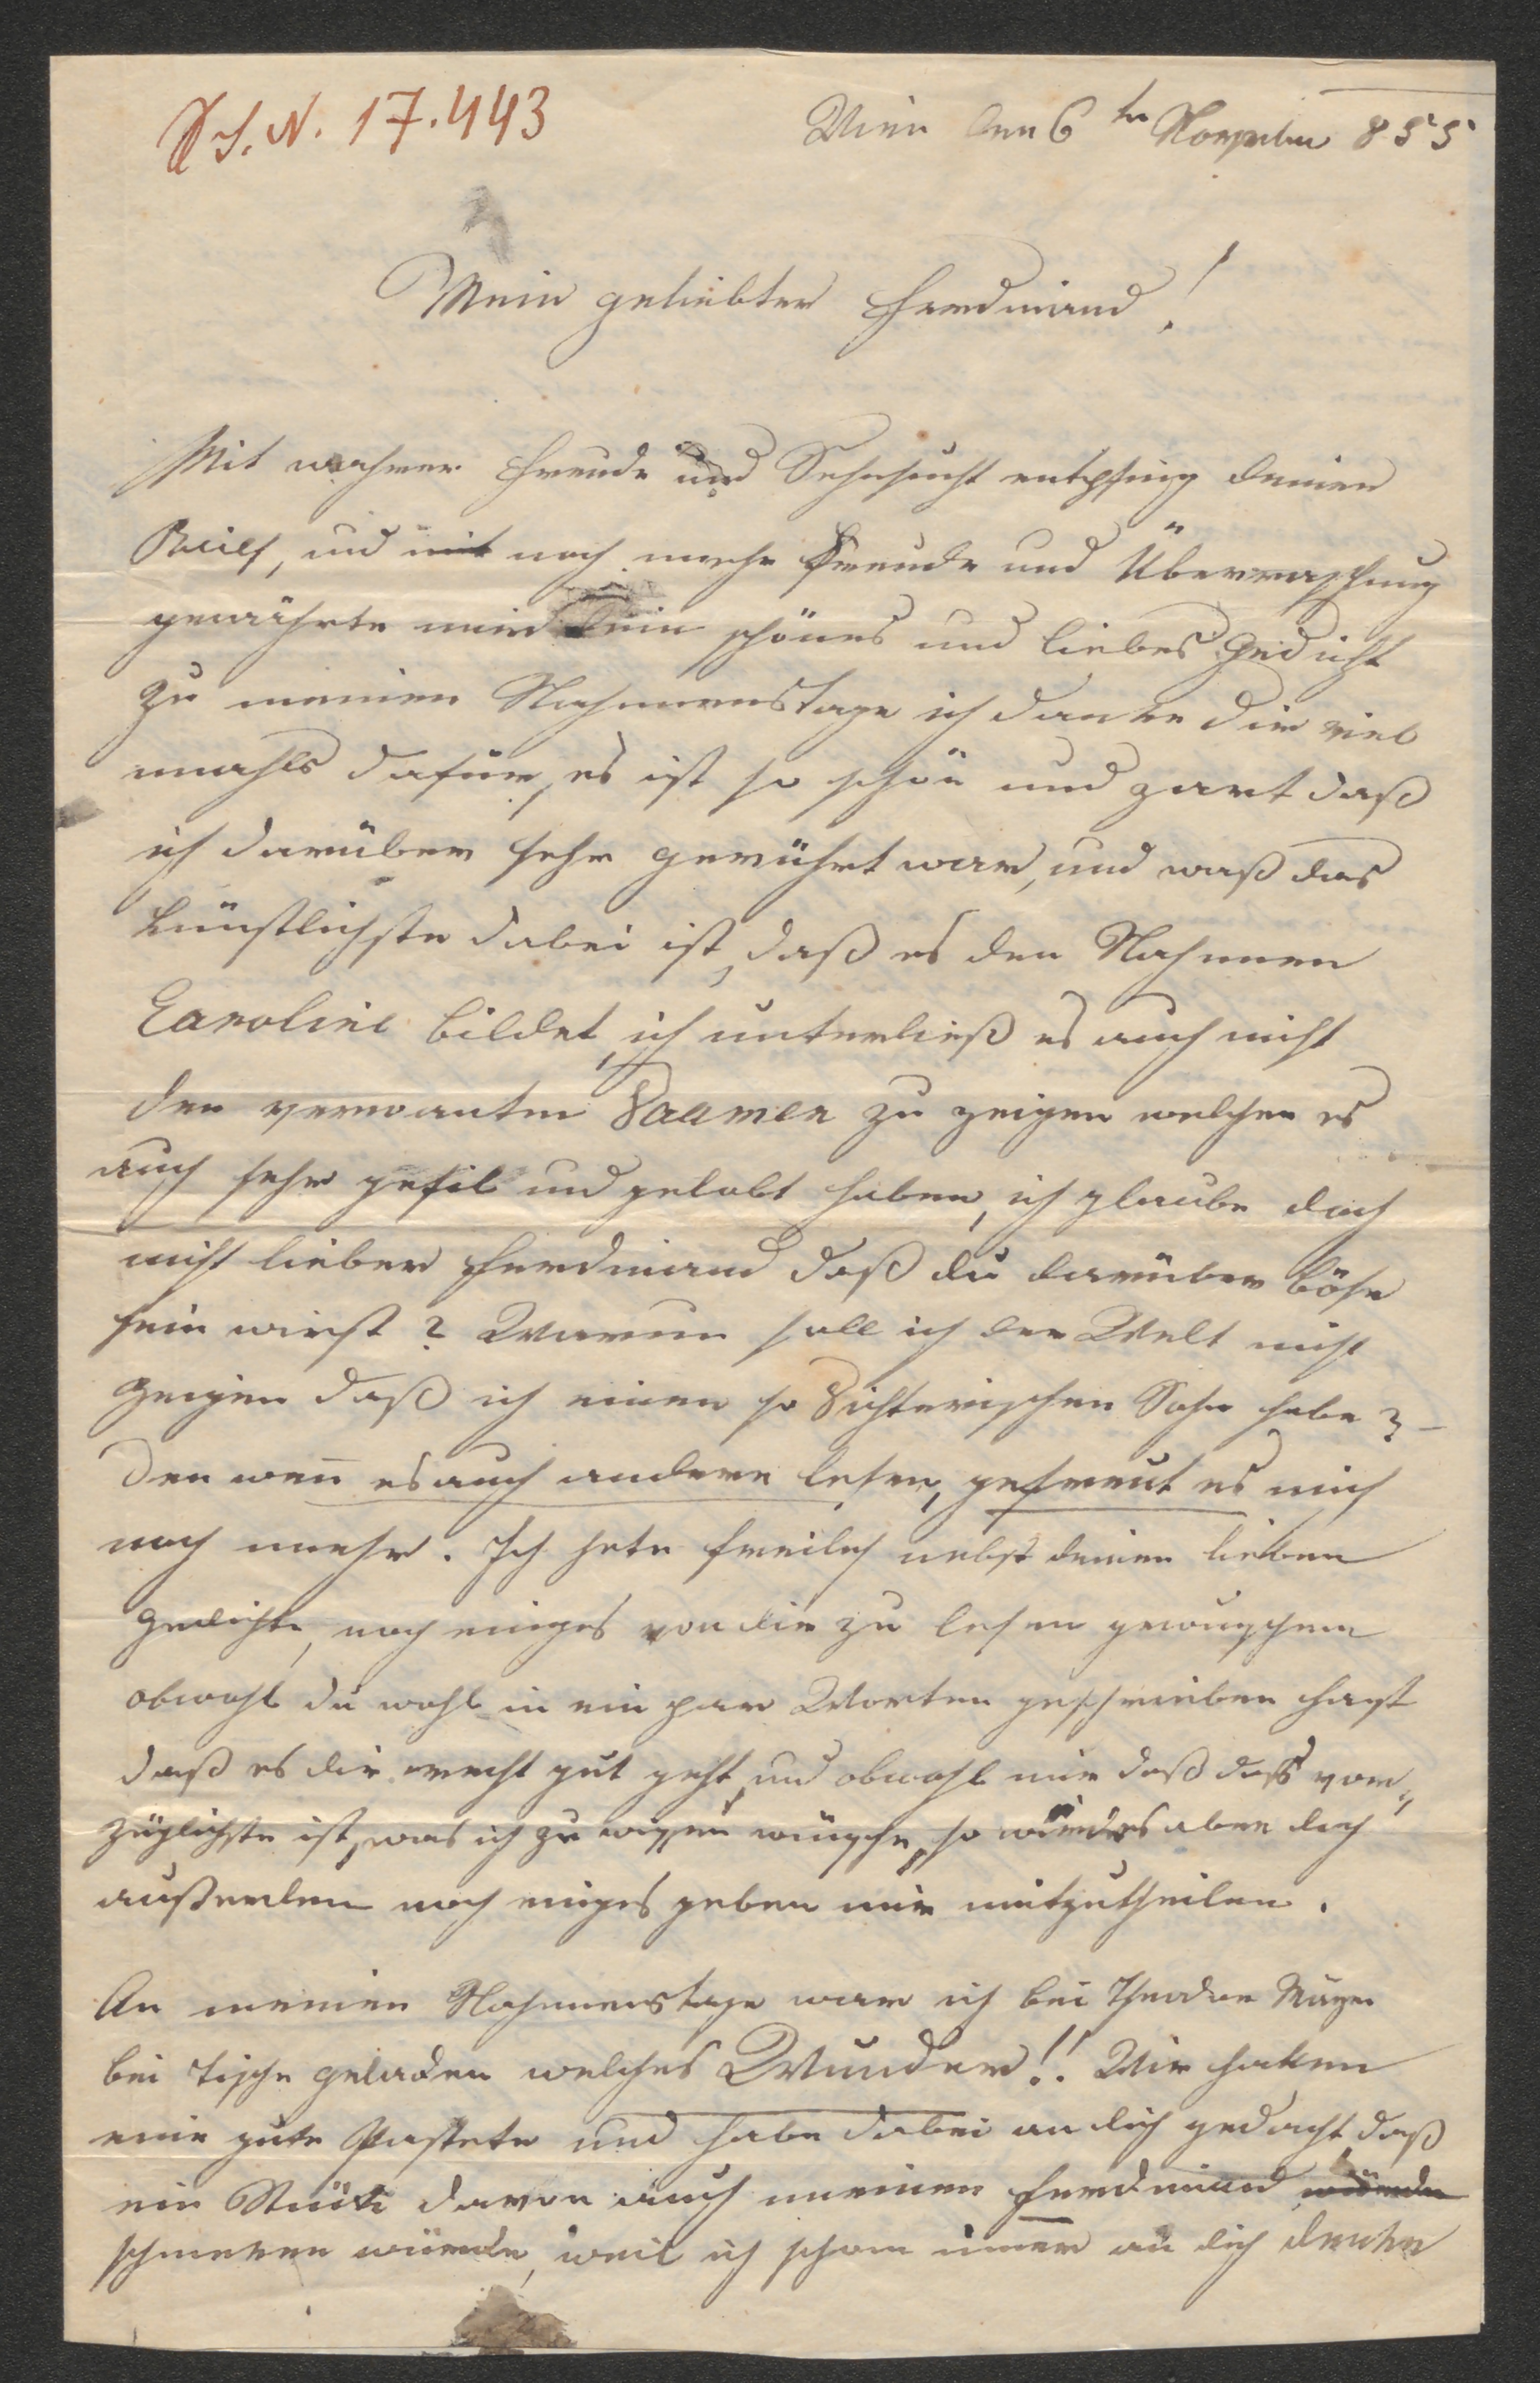 J. N. 17.443
Wien den 6 tn November 855
Mein geliebter Ferdinand!
Mit wahrer Freude und Sehnsucht entpfing deinen
Brief, und mit noch mehr Freude und Überraschung
gewährte mir dein schönes und liebes Gedicht
zu meinen Nahmenstage ich danke dir viel
mahls dafür, es ist so schön und zart daß
ich darüber sehr gerührt war, und waß das
künstlichste dabei ist, daß es den Nahmen
Caroline bildet, ich unterließ es auch nicht
den verwanten Daamen zu zeigen welchen es
auch sehr gefil und gelobt haben, ich glaube doch
nicht lieber Ferdinand daß du darüber böse
sein wirst? Warum soll ich der Welt nicht
zeigen daß ich einen so Dichterischen Sohn habe? –
Den wen̄ es auch andere lesen, gefreut es mich
noch mehr. Ich hete freilich nebst deinen lieben
Gedichte, noch einiges von dir zu lesen gewunschen
obwohl du wohl in ein par Worten geschrieben hast
daß es dir recht gut geht, und obwohl mir daß daß vor„
züglichste ist, was ich zu wissen wünsche, so würdes aber doch
außerdem noch einiges geben mir mitzutheilen.
An meinen Nahmenstage war ich bei Theodor Mayer
bei Tische geladen welches Wunder!! Wir hatten
eine gute Pastete und habe dabei an dich gedacht, daß
ein Stück davon auch meinen Ferdinand würde
schmeken würde, weil ich schon im̄er an dich denke